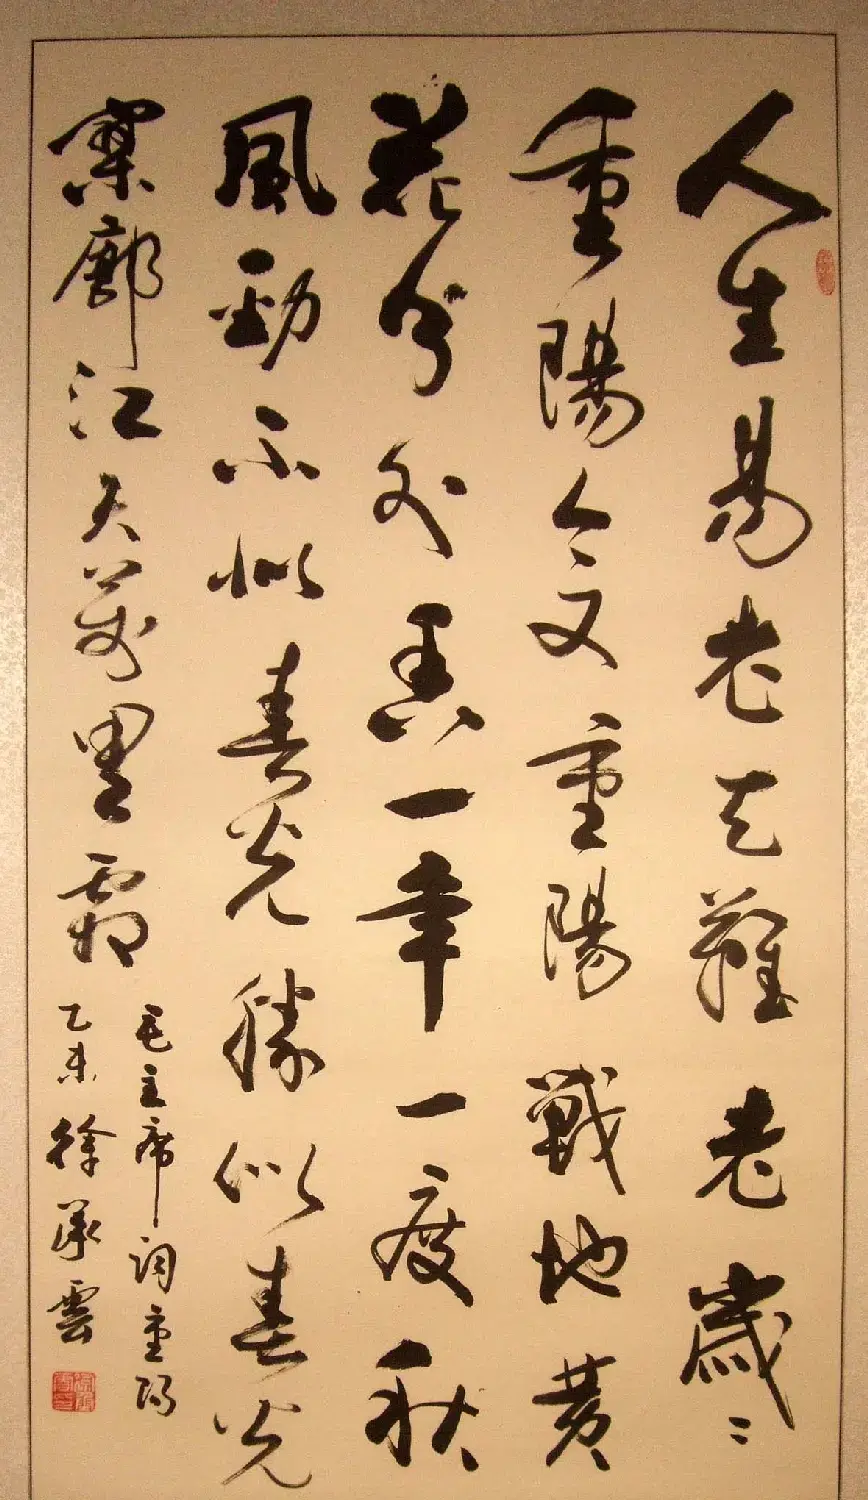 人生易老天難老歲〻
重陽今又重陽戰地黃
花分外香一年一度秋
風勁不似春光勝似春光
寥廓江天萬里霜
毛主席詞重陽
乙未徐承雲